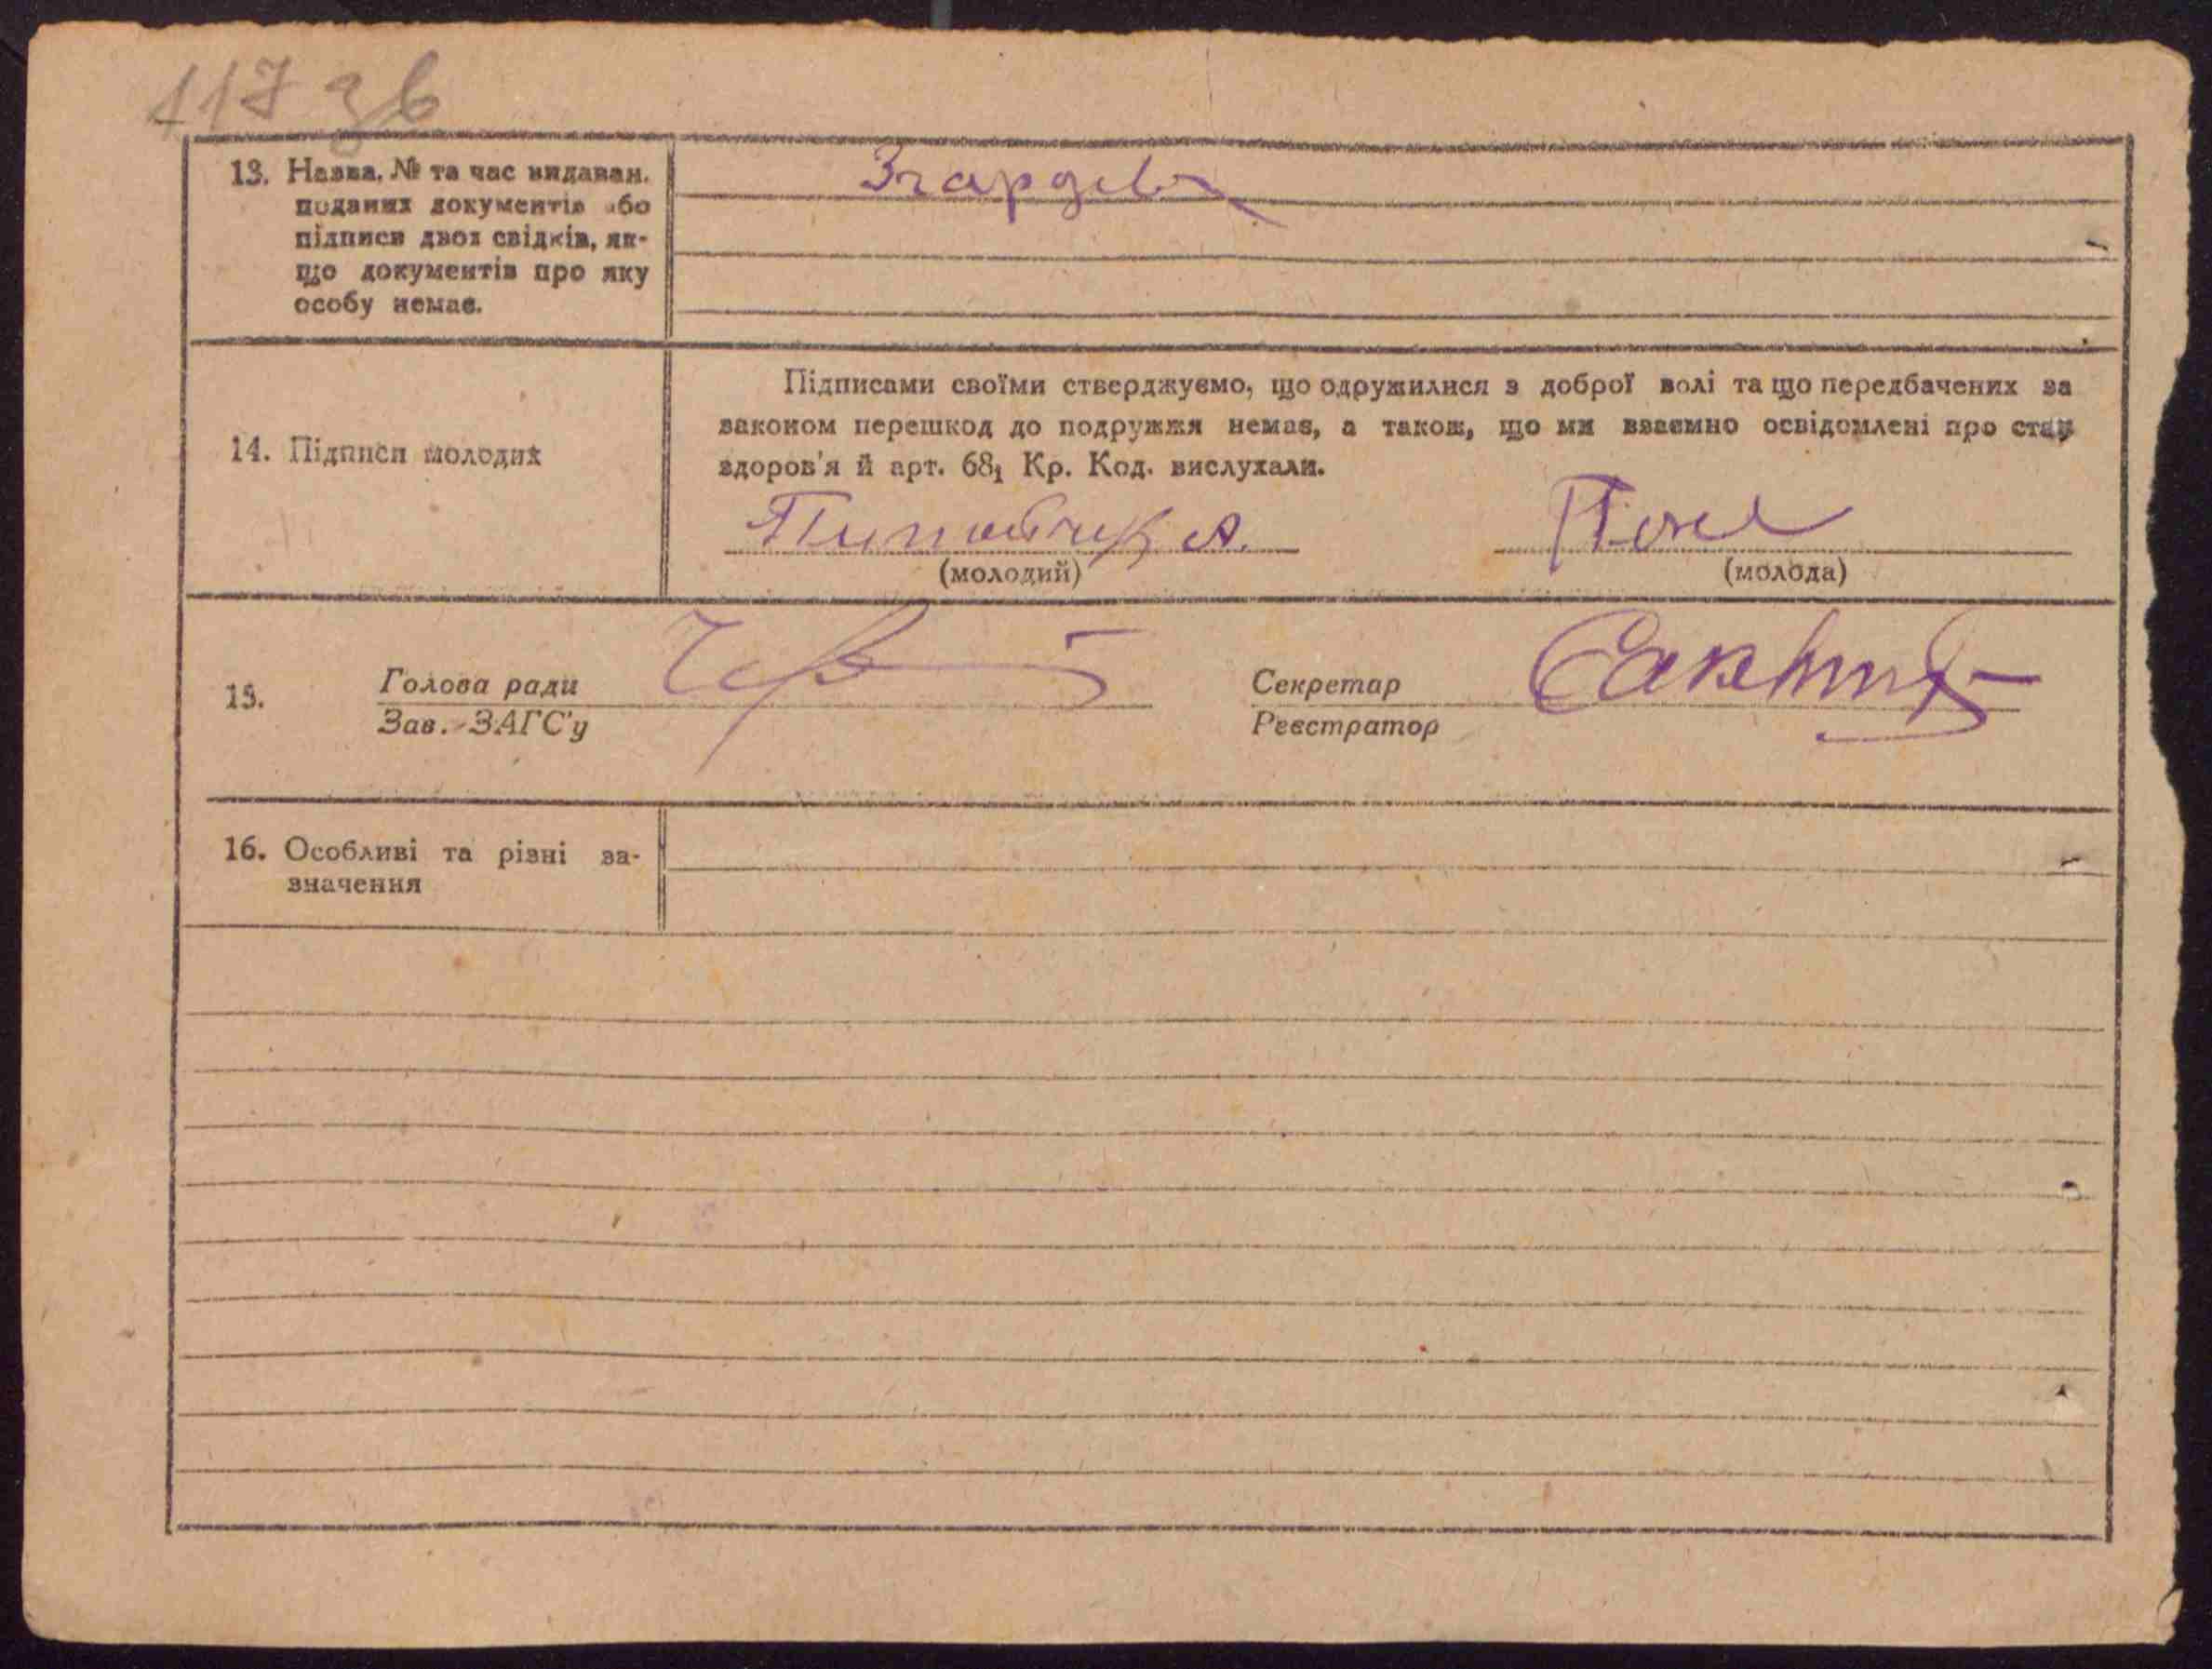 117 зв
13. Назва, № та час видаван.
поданих документів або
підписи двох свідків, як-
що документів про яку
особу немає.
14. Підписи молодих
Підписами своїми стверджуємо, що одружилися з доброї волі та що передбачених за
законом перешкод до подружжя немає, а також, що ми взаємно освідомлені про стан
здоров'я й арт. 68₁ Кр. Код. вислухали.
А.
(молодий)
(молода)
15.
Голова ради
Зав. ЗАГС'у
Секретар
Реєстратор
16. Особливі та різні за-
значення